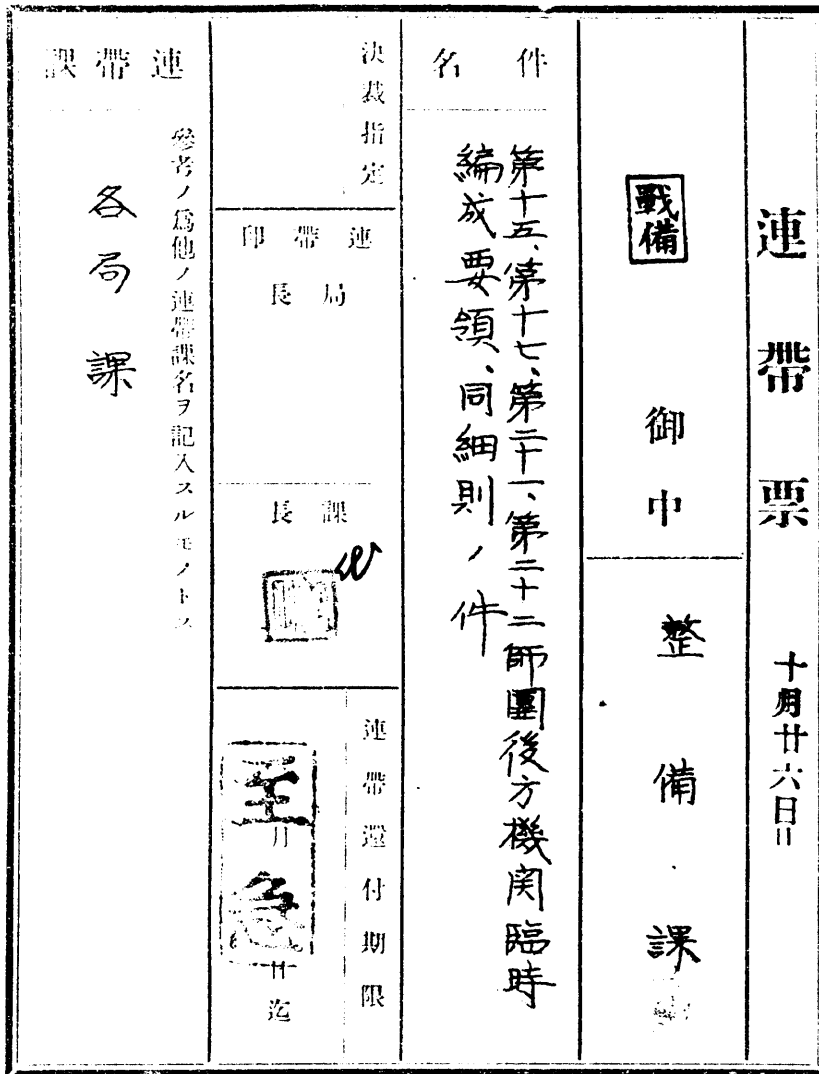 連帶票
十月廿六日日
戰備
御中
整備課
件名
第十五、第十七、第二十一、第二十二師團後方機関臨時
編成要領、同細則ノ件
決裁指定
連帶印
局長
課長
連帶還付期限
至急
月
日迄
連帶課
參考ノ爲他ノ連帶課名ヲ記入スルモノトス
各局課